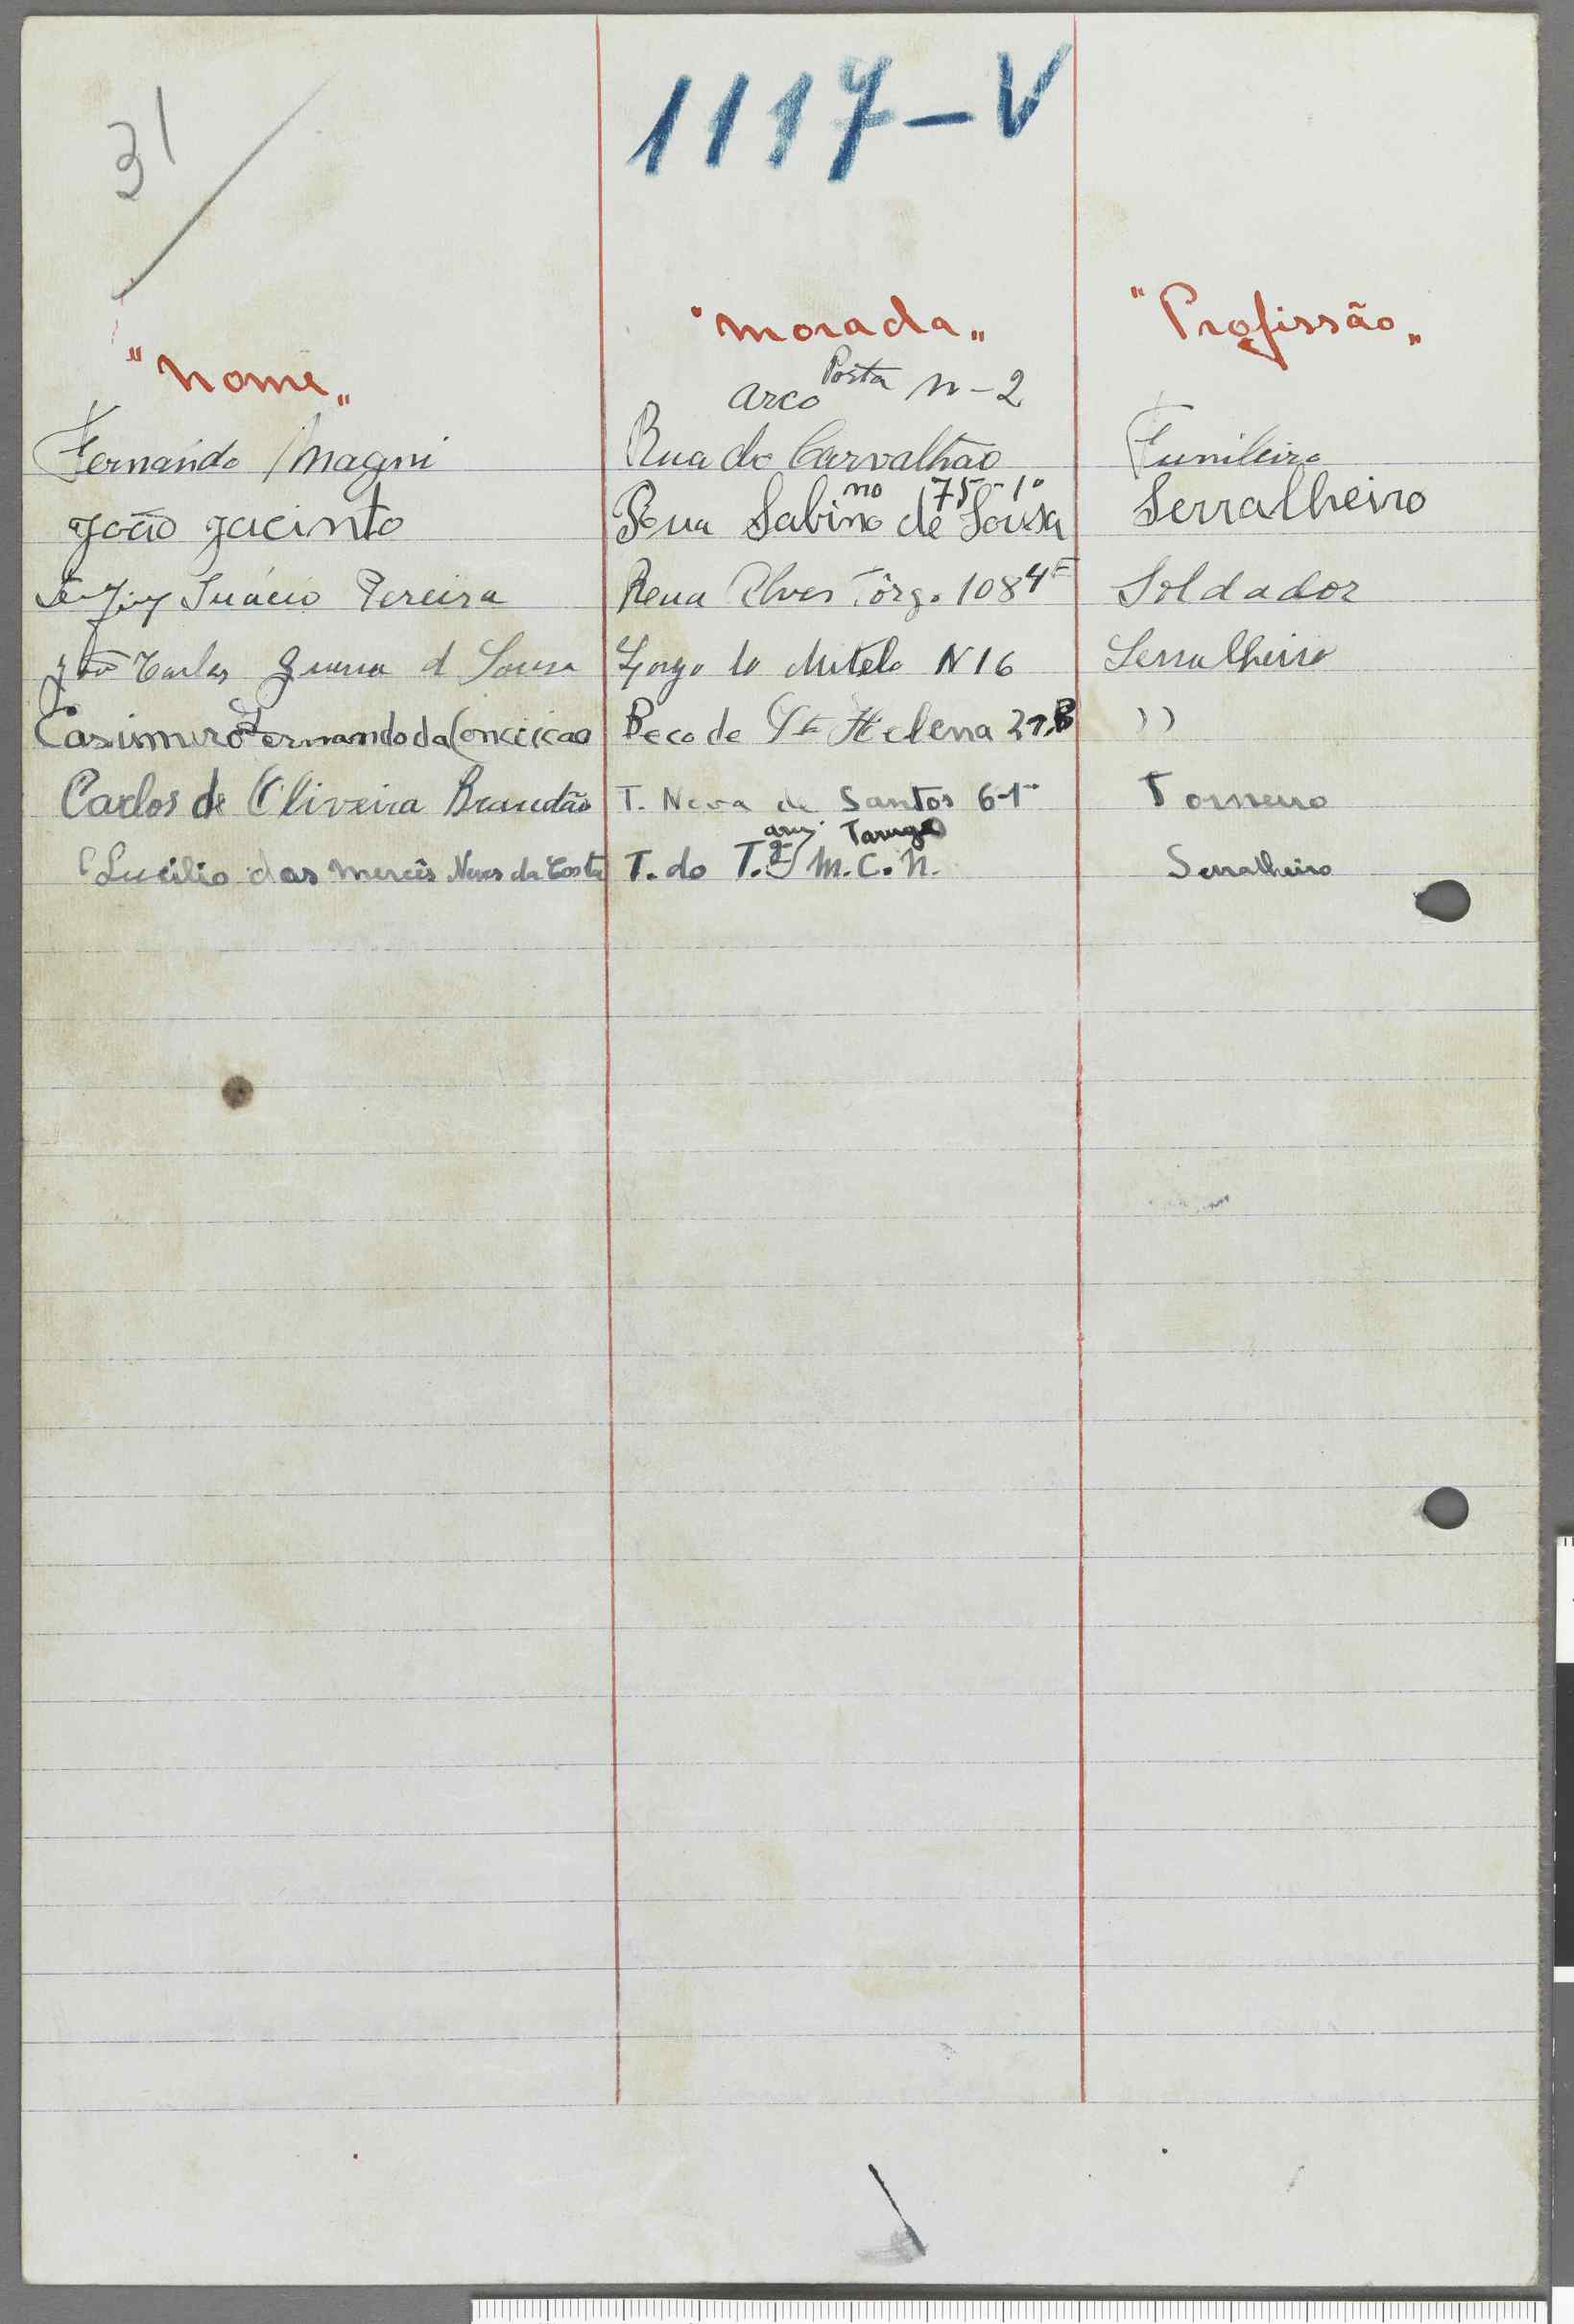 31
1117-V
"Nome" "Morada" "Profissão"
arco Porta n-2
Fernando Magni Rua do Carvalhão Funileiro
nº 75-1º
João Jacinto Rua Sabino de Sousa Serralheiro
Inácio Pereira Rua Alves Tôrgo 108 4º Soldador
João Carlos Guerra d Sousa Largo do Mitelo N 16 Serralheiro
Casimiro Fernando da Conceicao Beco de Sta Helena 21,B ))
Carlos de Oliveira Brandão T. Nova de Santos 6-1º Torneiro
Taruga
Lucilio das Mercês Neves da Costa T. do T. M.C.N. Serralheiro